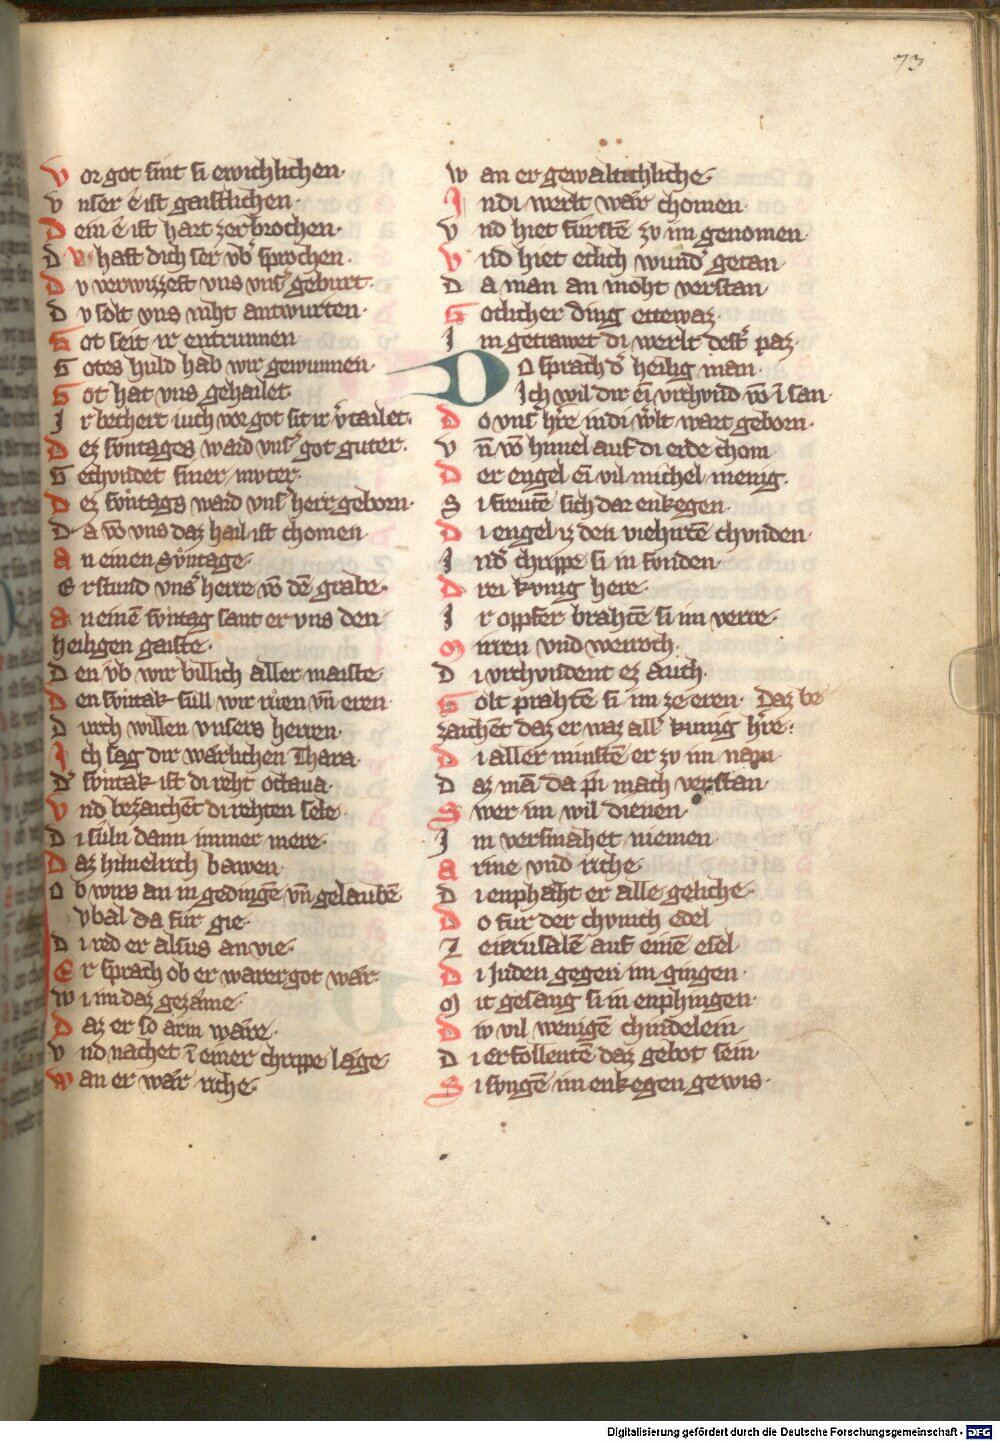 73
Vor got sint si ewichlichen·
Vnser e ist gaistlichen
Dein e ist hart zerbrochen·
Du hast dich ser vb̾ sprochen·
Dv verwizzest vns vns̾ geburt·
Dv solt vns niht antwurten·
Got seit ir entrunnen
Gotes huld hab wir gewunnen·
Got hat vns gehailet
Ir bechert iuch vor got sit ir v̾tailet·
Dez svntages ward vns̾ got guter·
Gechvndet siner mvter·
Dez svntags ward vns̾ herr geborn·
Da vō vns daz hail ist chomen·
An einen Svntage·
Erstund vns̾ herre vō dē grabe·
An einē svntag sant er vns den
heiligen gaiste·
Den vb wir billich aller maiste·
Den svntak sull wir růen vn̄ eren·
Durch willen vnsers herren·
Ich sag dir wärlichen Thara·
D̾ svntak ist di reht octaua·
Vnd bezaichēt di rehten sele·
Di süln dann immer mere·
Daz himelrich bawen·
Ob wirs an in gedingē vn̄ gelaubē
Vbal da für gie·
Di red er alsus an vie·
Er sprach ob er warer got wär·
Wi im daz gezäme·
Daz er so arm wäre·
Vnd nachet ī einer chrippe läge·
Wan er wär riche·
Wan er gewaltichliche·
In di werlt wär chomen·
Vnd hiet fürstē zv im genomen·
Vnd hiet etlich wund̾ getan·
Da man an moht verstan·
Gotlicher ding ettewaz
Im getrawet di werlt dest̾ paz·
Do sprach d̾ heilig man·
Ich wil dir ei͂ vrchvnd vō ī san·
Do vns̾ h̾re in di w̾lt wart geborn·
Vn̄ vō himel auf di erde chom·
Der engel ei͂ vil michel menig·
Si freutē sich dar enkegen·
Di engel iz den viehirtē chvnden·
In d̾ chrippe si in funden·
Drei kvnig here·
Ir opffer brahtē si im verre·
Mirren vnd weiroch·
Di vrchvndent ez auch·
Golt prahtē si im ze eren· Daz be
zaichēt daz er waz all̾ kunig h̾re·
Di aller minstē er zv im nam·
Daz mā da pei mach verstan·
Swer im wil dienen·
Im versmahet niemen·
Arme vnd riche·
Di enphaht er alle geliche·
Do fur der chvnich edel
Ze ierusalē auf einē esel·
Di Juden gegen im gingen·
Mit gesang si in enphingen·
Div vil wenigē chindelein·
Di erfollentē daz gebot sein·
Si svngē im enkegen gewis·
Digitalisierung gefördert durch die Deutsche Forschungsgemeinschaft - DFG